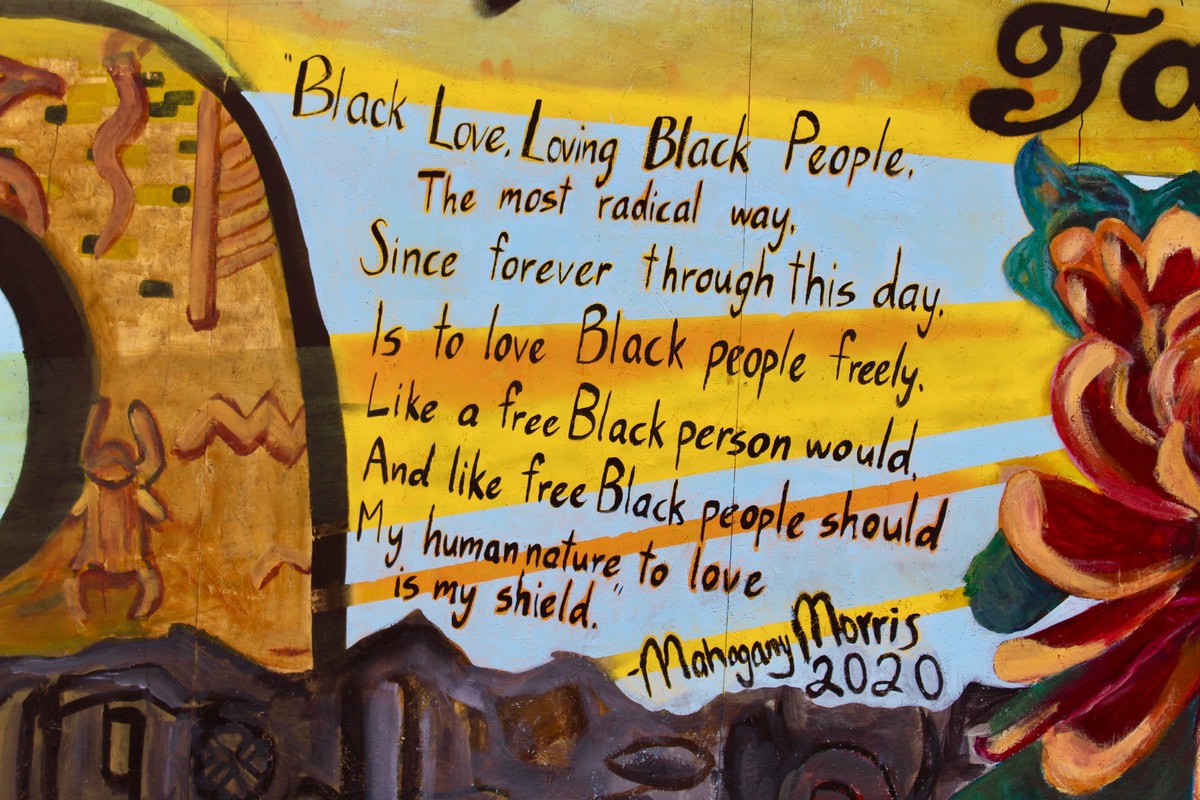 "Black Love, Loving Black People,
The most radical way,
Since forever through this day,
Is to love Black people freely,
Like a free Black person would,
And like free Black people should
My human nature to love
is my shield."
-Mahogany Morris
2020